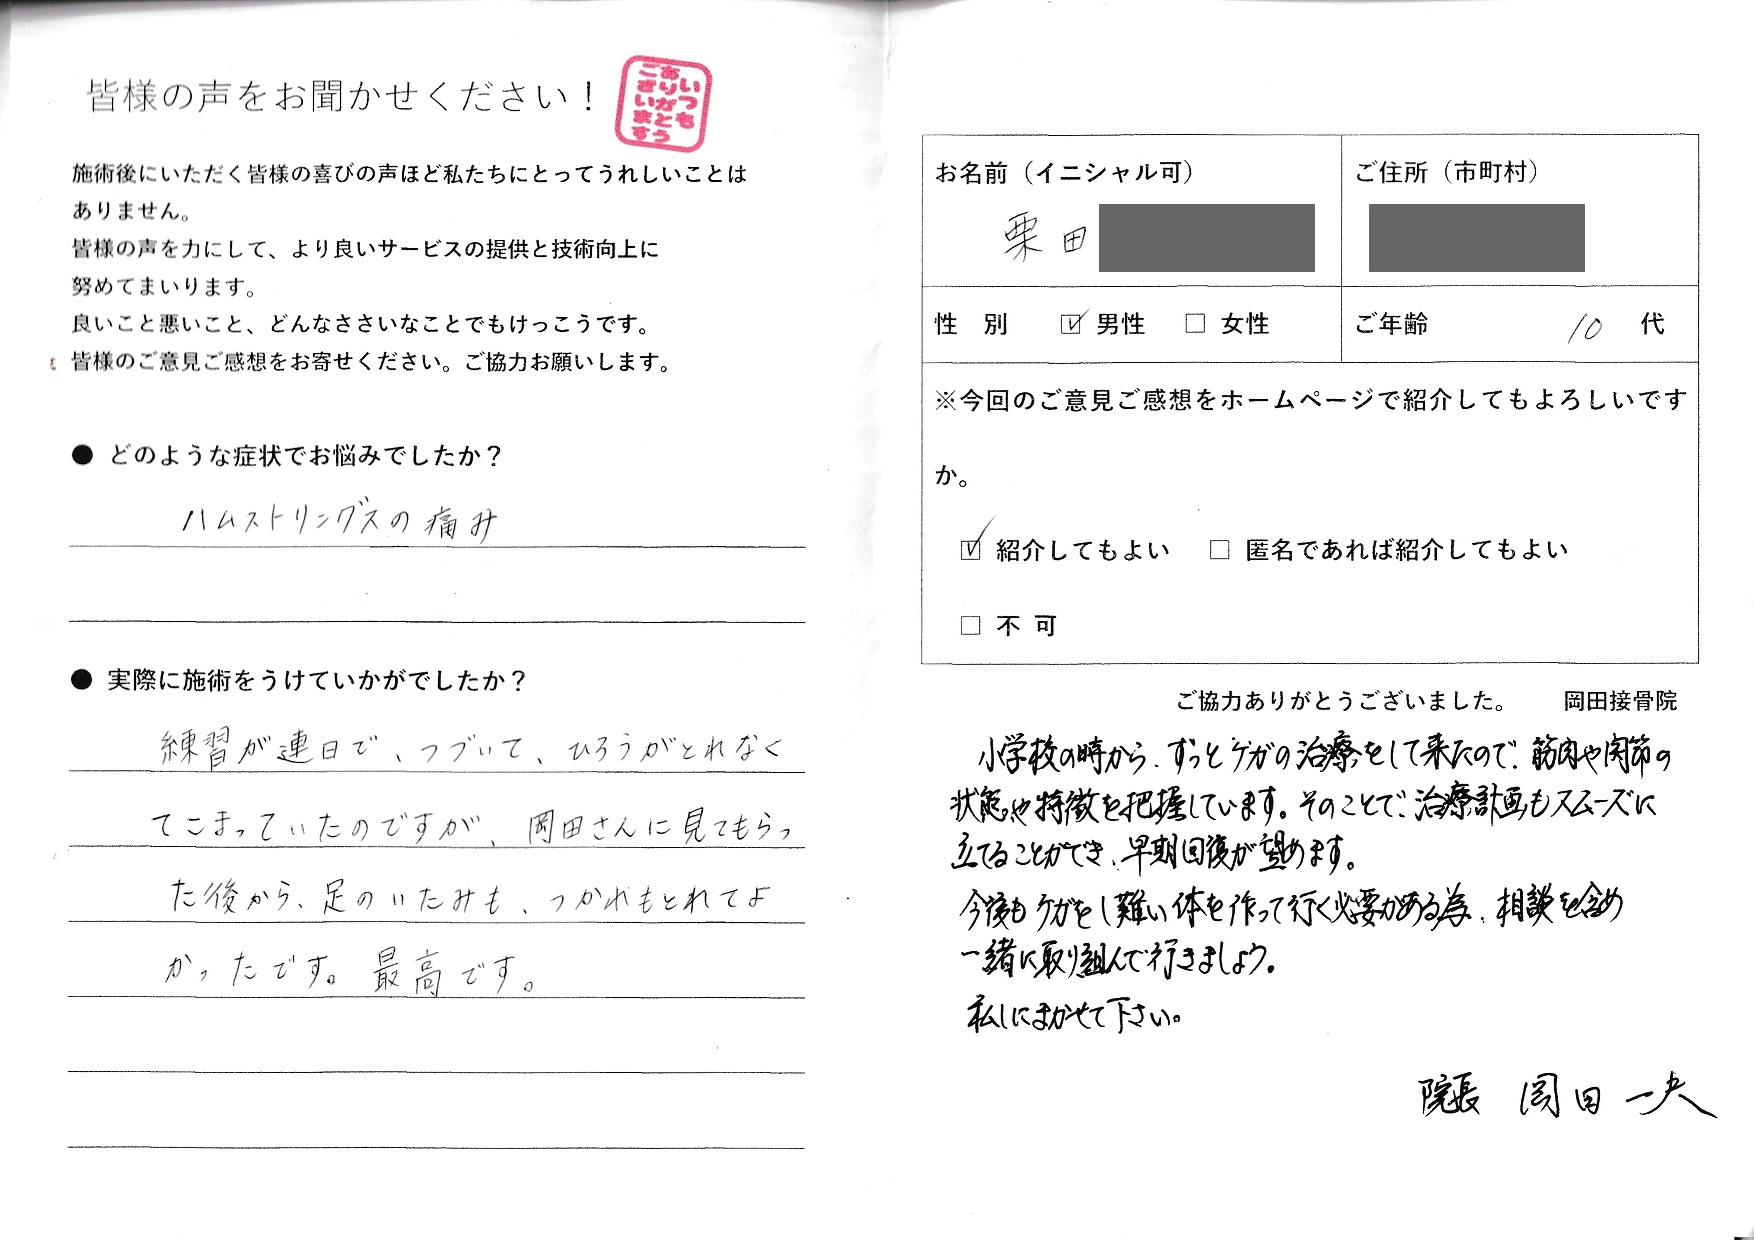 皆様の声をお聞かせください！
いつも
ありがとう
ございます
施術後にいただく皆様の喜びの声ほど私たちにとってうれしいことは
ありません。
皆様の声を力にして、より良いサービスの提供と技術向上に
努めてまいります。
良いこと悪いこと、どんなささいなことでもけっこうです。
皆様のご意見ご感想をお寄せください。ご協力お願いします。
● どのような症状でお悩みでしたか？
ハムストリングスの痛み
● 実際に施術をうけていかがでしたか？
練習が連日で、つづいて、ひろうがとれなく
てこまっていたのですが、岡田さんに見てもらっ
た後から、足のいたみも、つかれもとれてよ
かったです。最高です。
お名前（イニシャル可）
栗田
ご住所（市町村）
性 別 ☑ 男性 □ 女性
ご年齢 10 代
※今回のご意見ご感想をホームページで紹介してもよろしいです
か。
☑ 紹介してもよい □ 匿名であれば紹介してもよい
□ 不 可
ご協力ありがとうございました。 岡田接骨院
小学校の時から、ずっとケガの治療をして来たので、筋肉や関節の
状態や特徴を把握しています。そのことで、治療計画もスムーズに
立てることができ、早期回復が望めます。
今後もケガをし難い体を作って行く必要がある為、相談を含め
一緒に取り組んで行きましょう。
私しにまかせて下さい。
院長 岡田 一夫